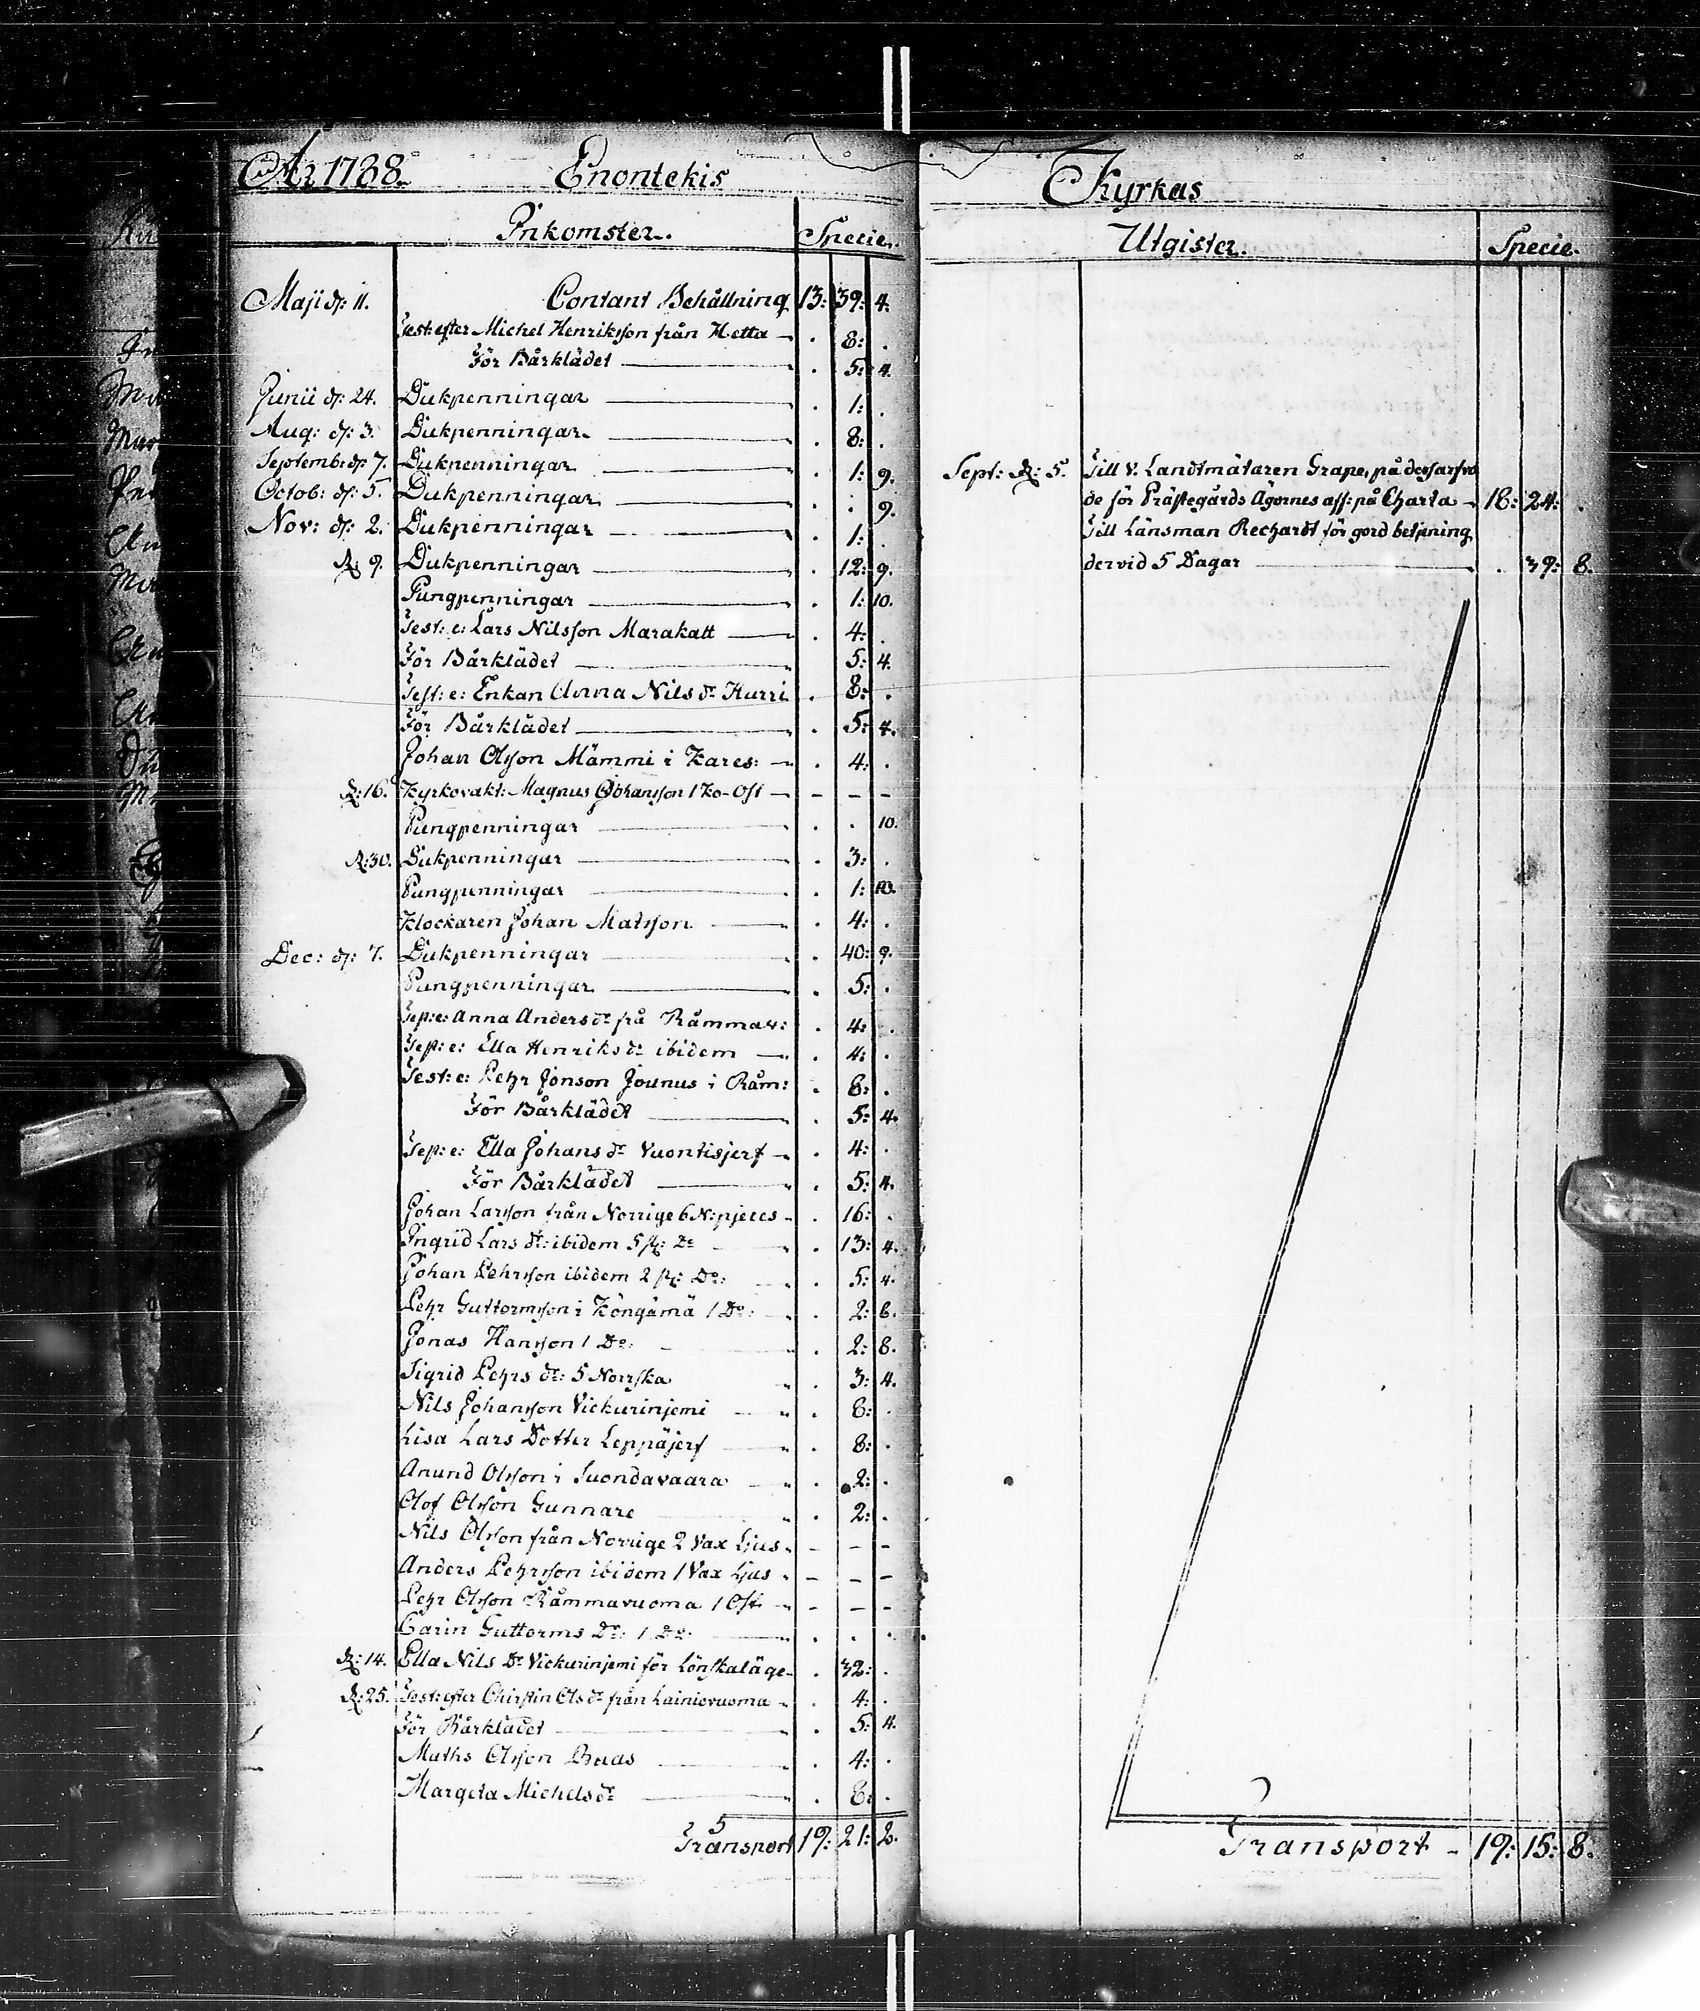 År 1788. Enontekis
Inkomster. Specie.
Maji d: 11. Contant Behållning 13: 39: 4.
Test: efter Michel Henriksson från Hetta - . 8: .
För Bårklädet . 5: 4.
Junii d: 24. Dukpenningar . 1: .
Aug: d: 3. Dukpenningar . 8: .
Septemb: d: 7. Dukpenningar . 1: 9.
Octob: d: 5. Dukpenningar . . 9.
Nov: d: 2. Dukpenningar . 1: .
d: 9. Dukpenningar . 12: 9.
Pungpenningar . 1: 10.
Test: e: Lars Nilsson Marakatt . 4: .
För Bårklädet . 5: 4.
Test: e: Enkan Anna Nils dr Hurri . 8: .
För Bårklädet . 5: 4.
Johan Olsson Mämmi i Kares: - . 4: .
d: 16. Kyrkovakt: Magnus Johansson 1 Ko-Ost - - - -
Pungpenningar . . 10.
d: 30. Dukpenningar . 3: .
Pungpenningar . 1: 10.
Klockaren Johan Matsson . 4: .
Dec: d: 7. Dukpenningar . 40: 9.
Pungpenningar . 5: .
Test: e: Anna Anders dr frå Råmmav: . 4: .
Test: e: Ella Henriks dr ibidem . 4: .
Test: e: Pehr Jonson Jounus i Råm: . 8: .
För Bårklädet . 5: 4.
Test: e: Ella Johans dr Vuontisjerf - . 4: .
För Bårklädet . 5: 4.
Johan Larsson från Norrige 6 N: pjeces - . 16: .
Ingrid Lars dr: ibidem 5 st: Do . 13: 4.
Johan Pehrsson ibidem 2 st: Do: . 5: 4.
Pehr Guttormsson i Köngämä 1 Do: . 2: 8.
Jonas Hansson 1 Do: . 2: 8.
Sigrid Pehrs dr: 5 Norrska . 3: 4.
Nils Johansson Vickurinjemi . 8: .
Lisa Lars Dotter Leppäjerf . 8: .
Anund Olsson i Suondavaara . 2: .
Olof Olsson Gunnare . 2: .
Nils Olsson från Norrige 2 Vax Ljus - - - -
Anders Pehrsson ibidem 1 Vax Ljus - - - -
Pehr Olsson Råmmavuoma 1 Ost - - - -
Carin Guttorms Dr: 1 Do: . . .
d: 14. Ella Nils Dr Vickurinjemi för Lönskaläge - . 32: .
d: 25. Test: efter Chirstin Ols dr från Lainiovuoma - . 4: .
För Bårklädet . 5: 4.
Maths Olsson . 4: .
Margeta Michels dr . 8: .
Transport 19: 21: 2.
Kyrkas
Utgifter. Specie.
Sept: d: 5. Till V. Landtmätaren Grape, på dess arfvo
de för Prästegårds Ägornes aff: på Charta - 18: 24: .
Till Länsman Rechardt för gord betjening
dervid 5 Dagar . 39: 8.
Transport - 19: 15: 8.